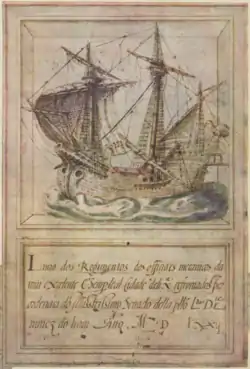 Liuro dos Regimentos dos officiaes mecanicos da
mui excelente E sempre leal cidade de Lx.ª refromados per
ordenãca do Illustrissimo Senado della pello L.do D.te
nunez do liam Anno M D